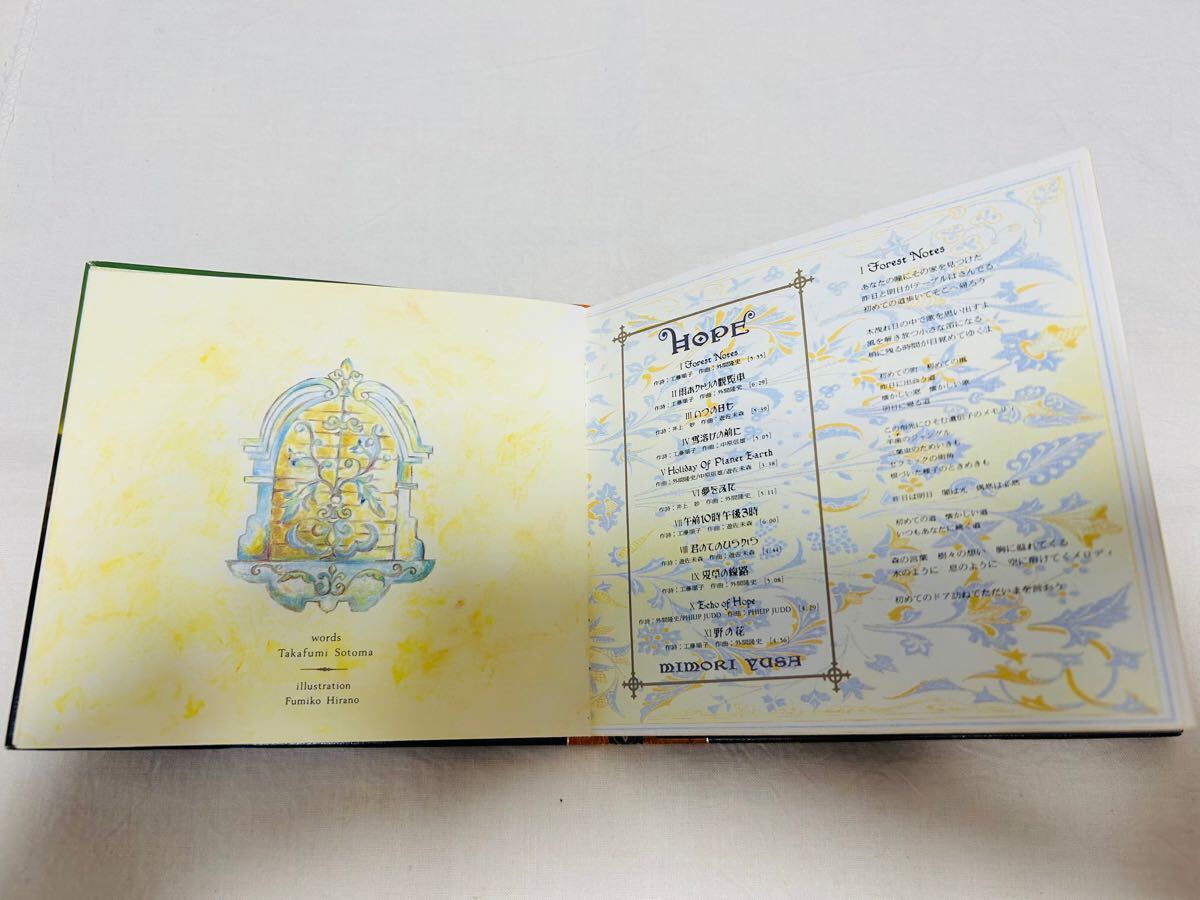 words
Takafumi Sotoma
illustration
Fumiko Hirano
HOPE
I Forest Notes
作詩：工藤順子 作曲：外間隆史 [5:35]
II 雨あがりの観覧車
作詩：工藤順子 作曲：外間隆史 [6:29]
III いつの日も
作詩：井上 妙 作曲：遊佐未森 [5:59]
IV 雪溶けの前に
作詩：工藤順子 作曲：中原信雄 [5:05]
V Holiday Of Planet Earth
作曲：外間隆史/中原信雄/遊佐未森 [3:38]
VI 夢をみた
作詩：井上 妙 作曲：外間隆史 [5:11]
VII 午前10時午後3時
作詩：工藤順子 作曲：遊佐未森 [6:00]
VIII 君のてのひらから
作詩：遊佐未森 作曲：遊佐未森 [4:44]
IX 夏草の線路
作詩：工藤順子 作曲：外間隆史 [5:08]
X Echo of Hope
作詩：外間隆史/PHILIP JUDD 作曲：PHILIP JUDD [4:29]
XI 野の花
作詩：工藤順子 作曲：外間隆史 [4:56]
MIMORI YUSA
I Forest Notes
あなたの瞳にその家を見つけた
昨日と明日がテーブルはさんでる
初めての道歩いてそこへ帰ろう
木洩れ日の中で歌を思い出すよ
風を解き放つ小さな笛になる
梢に残る時間が目覚めてゆくよ
初めての町 初めての風
昨日に出会う道
懐かしい窓 懐かしい歌
明日に帰る道
この指先にひそむ遺伝子のメモリィ
羊歯のジャングル
三葉虫のためいきも
セラミックの街角
根づいた種子のときめきも
昨日は明日 闇は光 偶然は必然
初めての道 懐かしい道
いつもあなたに続く道
森の言葉 樹々の想い 胸に溢れてくる
水のように 息のように 空に溶けてくメロディ
初めてのドア訪ねてただいまを言おう